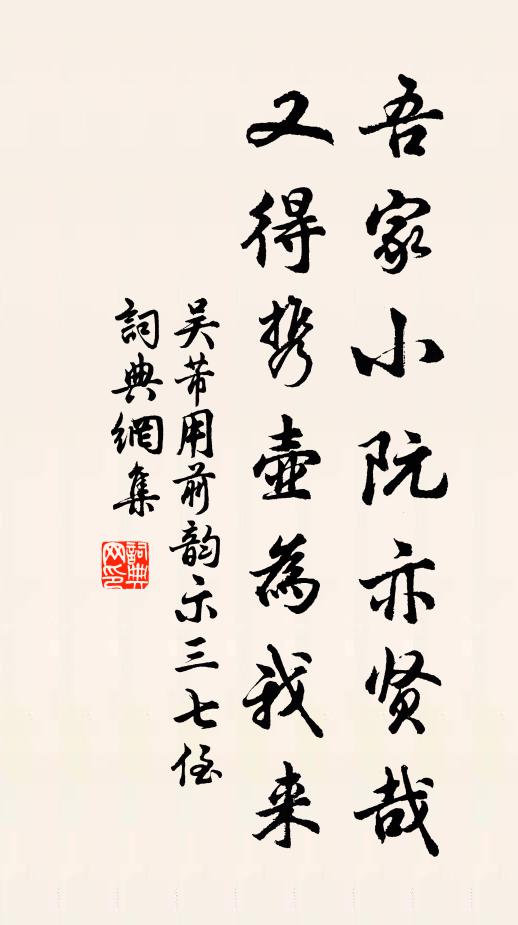 吾家小阮亦贤哉
又得携壶為我来
吴芾用前韵示三七侄
詞典網集
詞典
网印